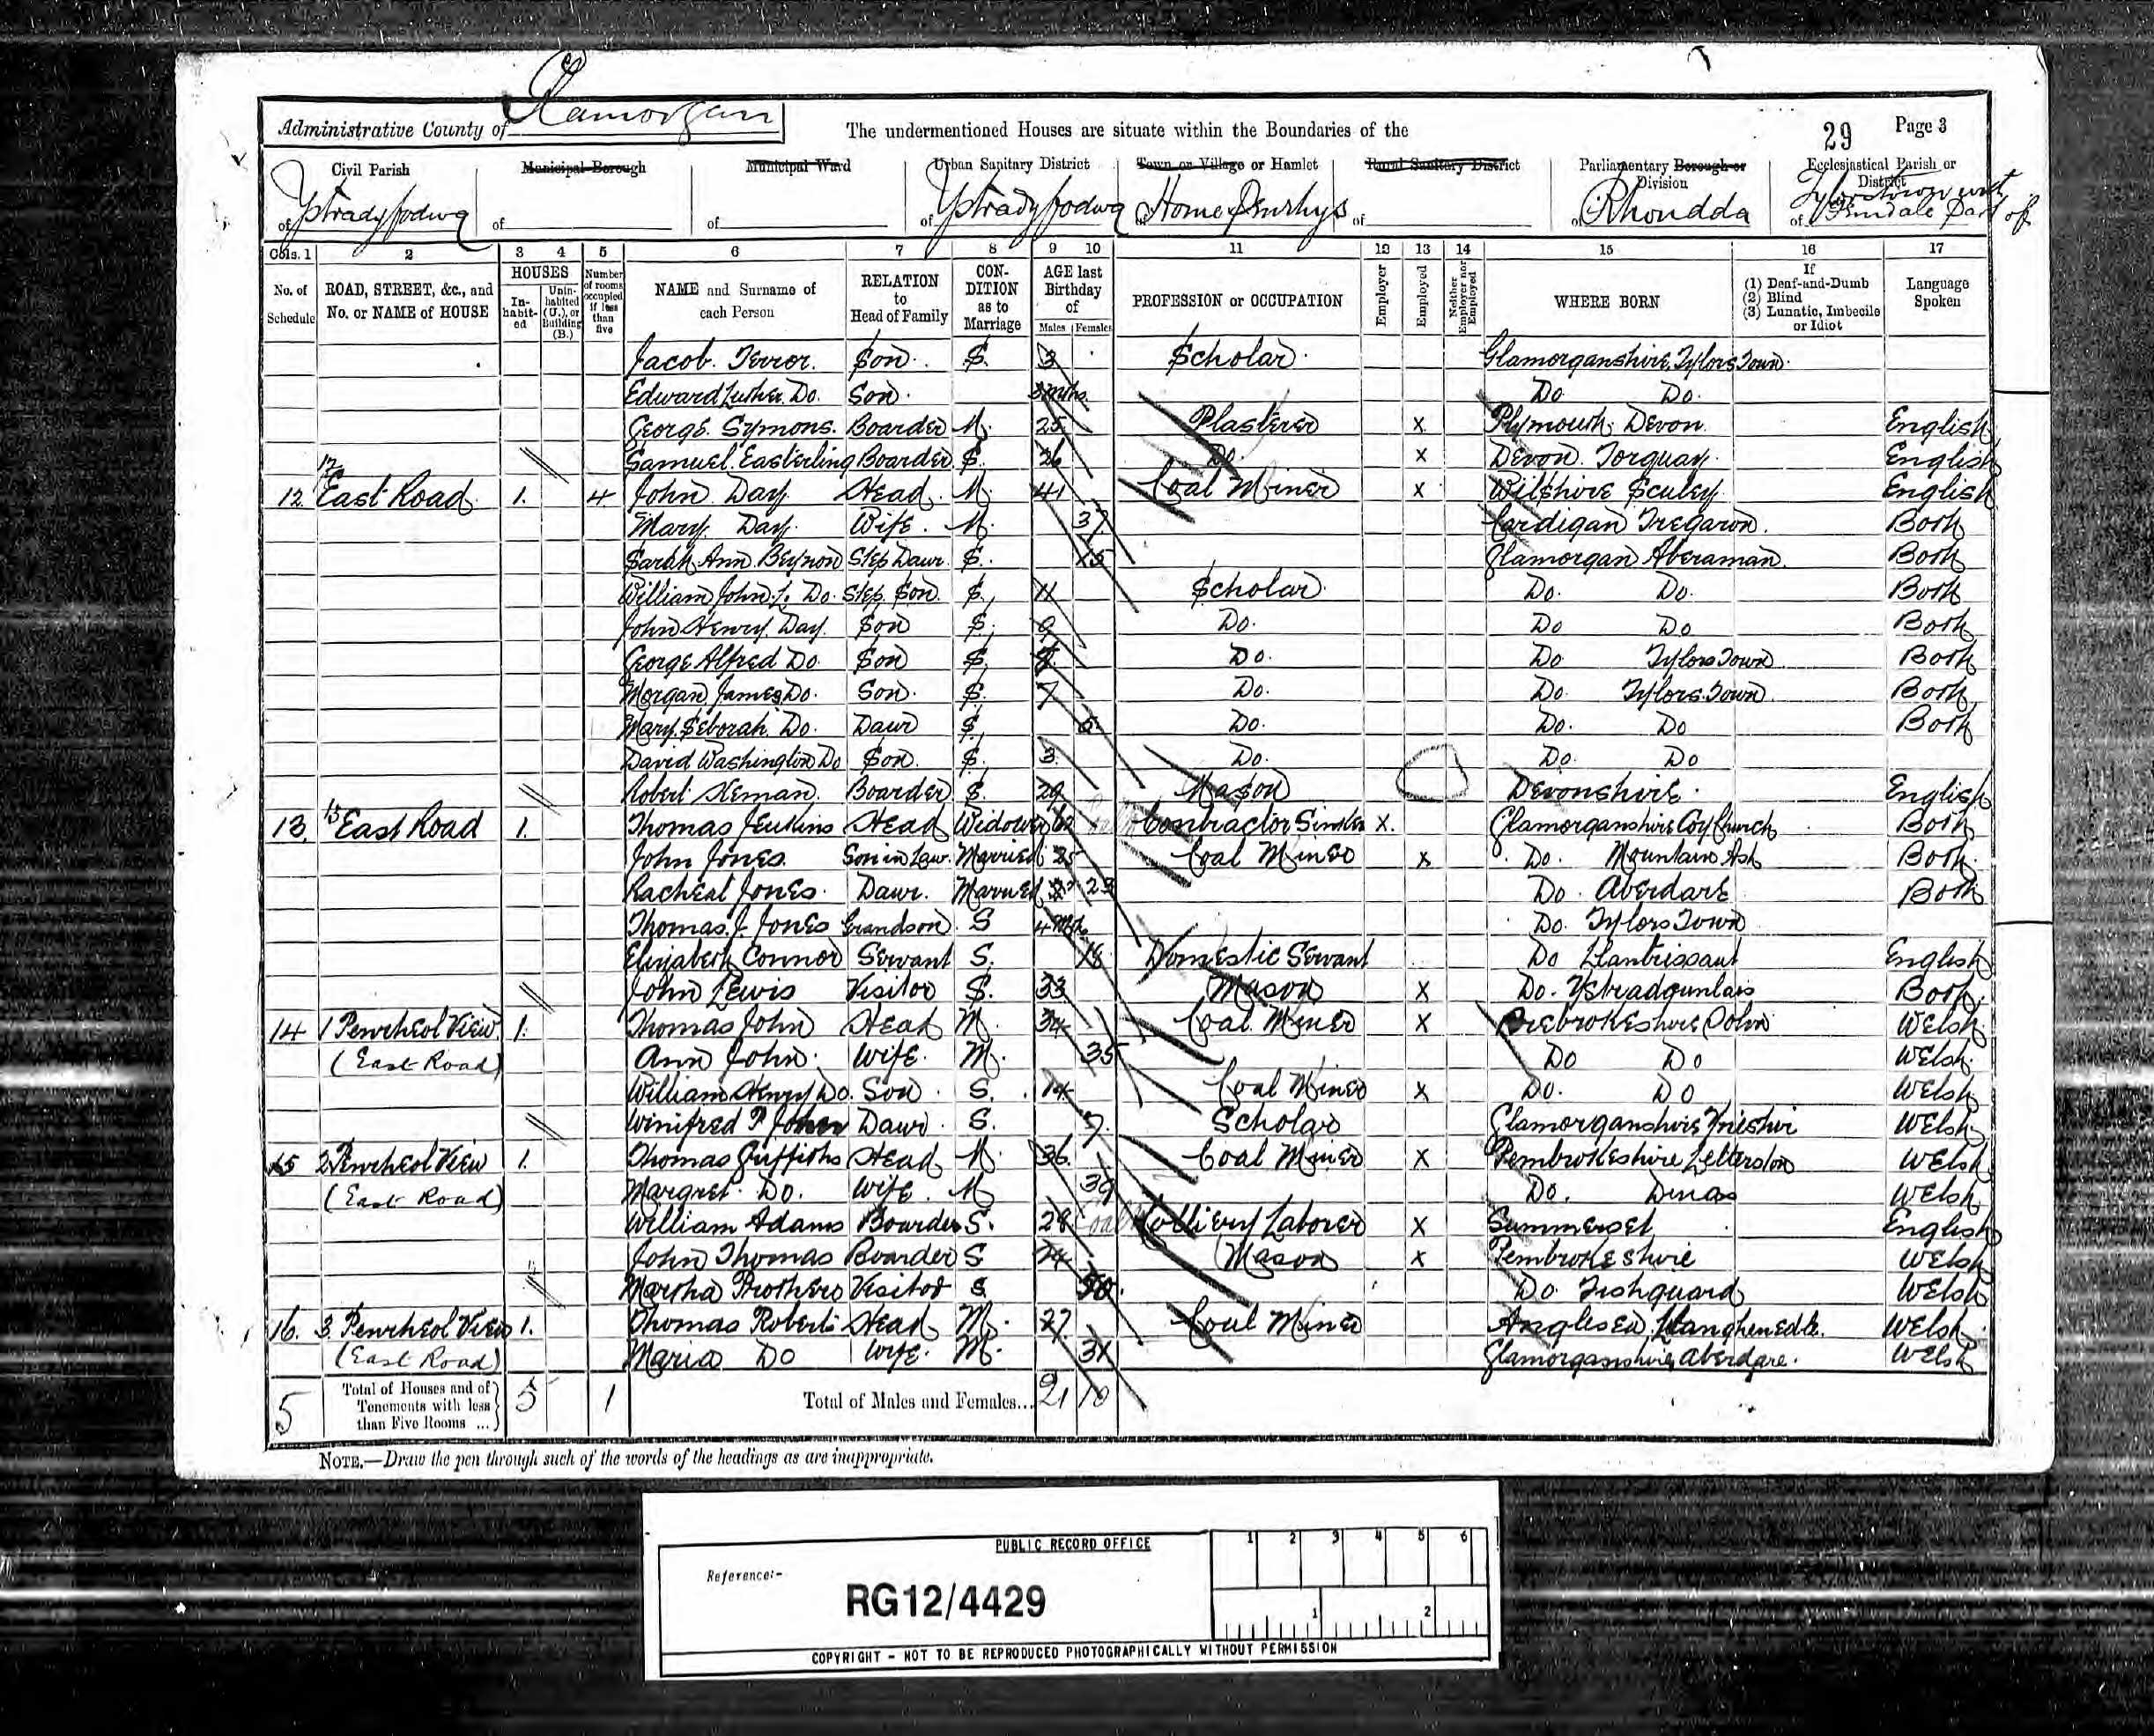 Administrative County of Glamorgan
The undermentioned Houses are situate within the Boundaries of the
29 Page 3
Civil Parish Municipal Borough Municipal Ward Urban Sanitary District Town or Village or Hamlet Rural Sanitary District Parliamentary Borough or Division Ecclesiastical Parish or District
of Ystradyfodwg of of of Ystradyfodwg of Home Penrhys of of Rhondda of Tylorstown with Ferndale part of
Cols. 1 2 3 4 5 6 7 8 9 10 11 12 13 14 15 16 17
No. of Schedule
ROAD, STREET, &c., and No. or NAME of HOUSE
HOUSES
In-habit-ed
Unin-habited (U.), or Building (B.)
Number of rooms occupied if less than five
NAME and Surname of each Person
RELATION to Head of Family
CON-DITION as to Marriage
AGE last Birthday of
Males Females
PROFESSION or OCCUPATION
Employer
Employed
Neither Employer nor Employed
WHERE BORN
If
(1) Deaf-and-Dumb
(2) Blind
(3) Lunatic, Imbecile or Idiot
Language Spoken
Jacob Terror. Son. S. 3 Scholar. Glamorganshire, Tylors Town.
Edward Luther Do. Son. 3 mths Do Do.
George Symons. Boarder M. 25 Plasterer x Plymouth Devon. English
Samuel Easterling Boarder S. 26 Do. x Devon. Torquay. English
12 12 East Road 1. 4 John Day Head. M. 41 Coal Miner x Wilshire English
Mary Day. Wife. M. 37 Cardigan Tregaron. Both
Sarah Ann Beynon Step Dawr. S. 15 Glamorgan Aberaman. Both
William John L. Do. Step Son. S. 11 Scholar. Do. Do. Both
John Henry Day. Son S. 9 Do. Do Do Both
George Alfred Do Son S. 8 Do. Do Tylors Town Both
Morgan James Do. Son. S. 7 Do. Do. Tylors Town Both
Mary Deborah Do. Dawr S. 5 Do. Do. Do Both
David Washington Do Son. S. 3. Do. Do. Do
Robert Boarder S. 29 Mason Devonshire. English
13. 13 East Road 1. Thomas Jenkins Head Widower 62 Contractor Sinker x. Glamorganshire Coy Church Both
John Jones. Son in Law. Married 25 Coal Miner x Do. Mountain Ash Both
Racheal Jones. Dawr. Married 23 Do. Aberdare Both
Thomas J. Jones Grandson. S 4 Mths Do. Tylors Town
Elizabeth Connor Servant S. 18 Domestic Servant Do Llantrissant English
John Lewis Visitor S. 33 Mason x Do. Ystradgunlais Both
14 1 Penrheol View. 1. Thomas John Head M. 34 Coal Miner x Welsh
(East Road) Ann John. Wife. M. 35 Do Do Welsh
William Henry Do. Son S. 14 Coal Miner x Do. Do Welsh
Winifred P John Dawr. S. 7. Scholar Glamorganshire Welsh
15 2 Penrheol View 1. Thomas Griffiths Head M. 36. Coal Miner x Pembrokeshire Letterston Welsh
(East Road) Margret Do. Wife. M 39 Do. Dinas Welsh
William Adams Boarder S. 28 Colliery Laborer x Summerset English
John Thomas Boarder S 24 Mason x Pembrokeshire Welsh
Martha Prothero Visitor S. 50. Do. Fishguard Welsh
16. 3 Penrheol View 1. Thomas Roberts Head M. 27. Coal Miner Anglesea, Welsh
(East Road) Maria Do Wife. M. 31 Glamorganshire Aberdare. Welsh
5 Total of Houses and of Tenements with less than Five Rooms ... 5 1 Total of Males and Females... 21 10
NOTE.—Draw the pen through such of the words of the headings as are inappropriate.
PUBLIC RECORD OFFICE
1 2 3 4 5 6
Reference:-
RG12/4429
1 2
COPYRIGHT - NOT TO BE REPRODUCED PHOTOGRAPHICALLY WITHOUT PERMISSION